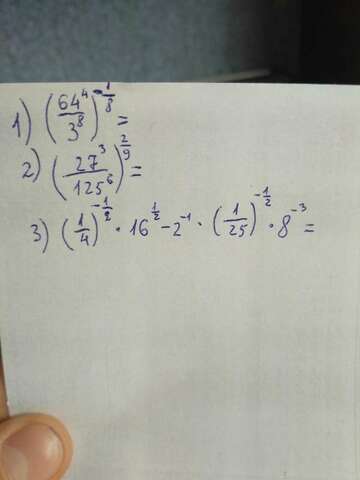 1) (64⁴/3⁸)^(-1/8) =
2) (27³/125⁶)^(2/9) =
3) (1/4)^(-1/2) · 16^(1/2) - 2⁻¹ · (1/25)^(-1/2) · 8⁻³ =